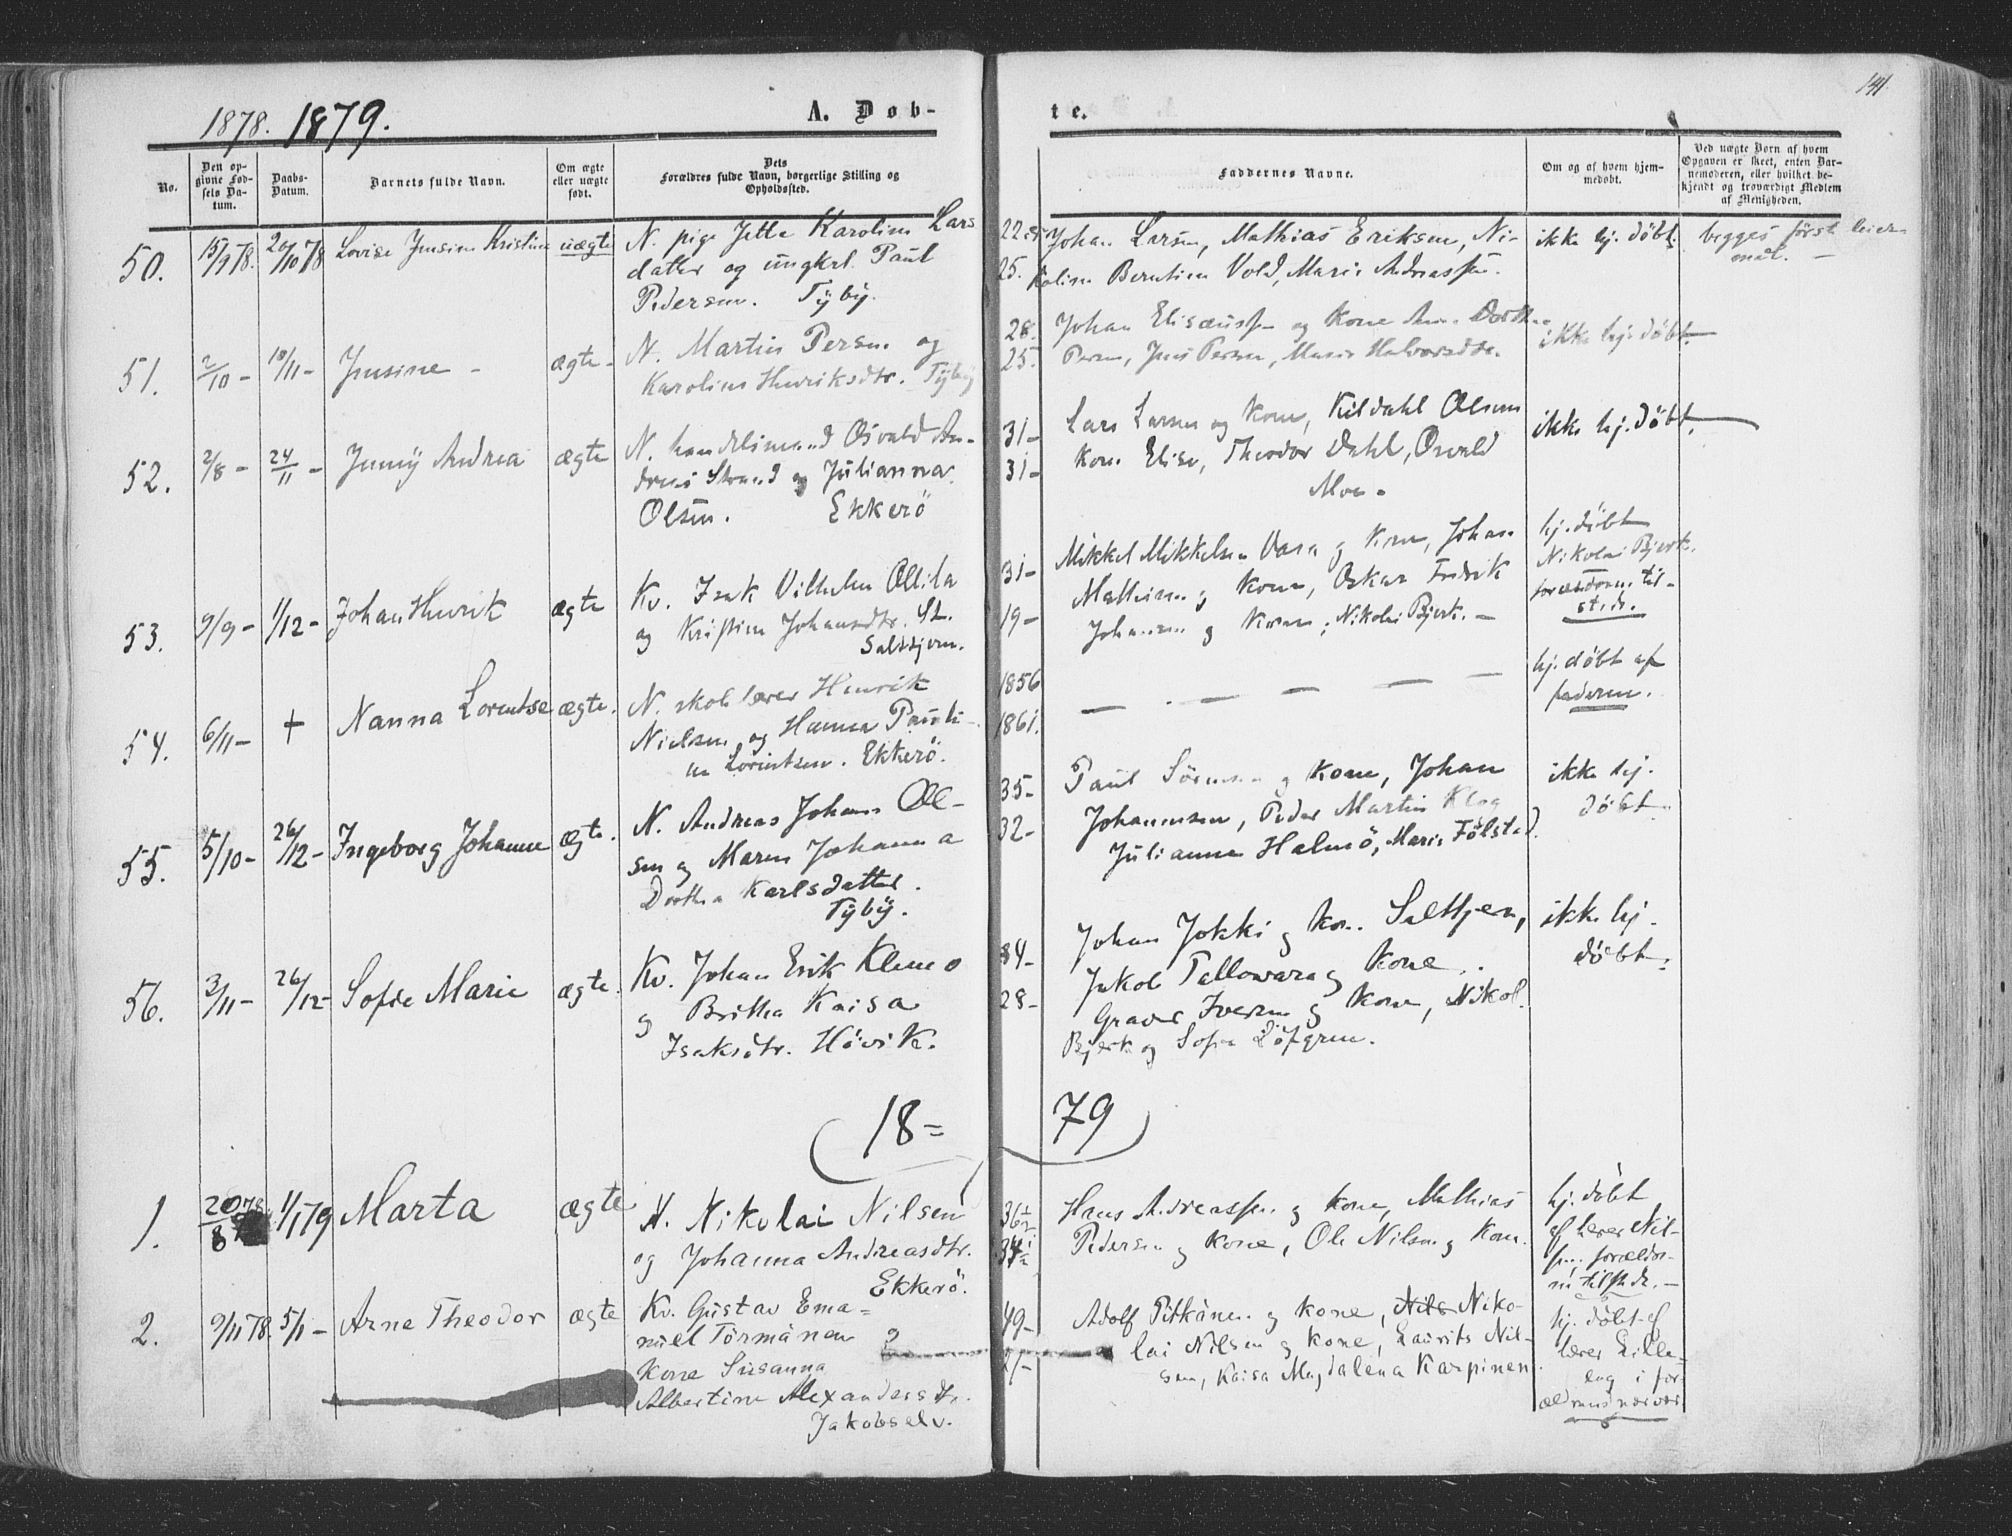 141
1878. 1879.
A. Døb-
te.
No.
Den op-
givne Fød-
sels Da-
tum.
Daabs-
Datum.
Barnets fulde Navn.
Om ægte
eller uægte
født.
Dets
Forældres fulde Navn, borgerlige Stilling og
Opholdssted.
Faddernes Navne.
Om og af hvem hjem-
medøbt.
Ved uægte Børn af hvem
Opgaven er skeet, enten Bar-
nemoderen, eller hvilket be-
kjendt og troværdigt Medlem
af Menigheden.
50. 15/9 78. 20/10 78 Lovise Jensine Kristine uægte
N. pige Jette Karoline Lars
datter og ungkrl. Paul
Pedersen. Tyby.
22
25.
Johan Larsen, Mathias Eriksen, Ni-
koline Berntine Vold, Marie Andreassen.
ikke hj. døbt.
begges først leier-
mål. -
51. 2/10 - 10/11 - Jensine - ægte -
N. Martin Persen og
Karoline Henriksdtr. Tyby
28.
25.
Johan Elisæuss. og kone Anne Dorthea
Persen, Jens Persen, Marie Halvorsdtr.
ikke hj. døbt.
52. 2/8 - 24/11 - Jenny Andrea ægte
N. handelsmand Osvald An-
dreas Strand og Julianna
Olsen. Ekkerö
31-
31-
Lars Larsen og kone, Kildahl Olsen
kone Elise, Theodor Dahl, Osvald
Moe.
ikke hj. døbt.
53. 9/9 - 1/12 - Johan Henrik ægte
Kv. Isak Vilhelm Ollila
og Kristine Johansdtr. St.
Saltsjern.
31-
19-
Mikkel Mikkelsen Vara og kone, Johan
Mathisen og kone, Oskar Fredrik
Johansen og kone, Nikolai Bjerk. -
hj. døbt
Nikolai Bjerk.
forældrene til-
stede.
54. 6/11 - + Nanna Lorentse ægte.
N. skolelærer Henrik
Nielsen og Hanna Pauli-
ne Lorentsen. Ekkerö.
1856
1861.
- - - - -
hj. døbt af
faderen.
55. 5/10 - 26/12 - Ingeborg Johanne ægte.
N. Andreas Johan Ol-
sen og Maren Johanna
Dorthea Karlsdatter.
Tyby.
35-
32-
Paul Sörensen og kone, Johan
Johannesen, Peder Martin Klog
Julianna Halmö, Marie Fölstad.
ikke hj.
döbt.
56. 3/11 - 26/12 - Sofie Marie ægte.
Kv. Johan Erik Klemo
og Britha Kaisa
Isaksdtr. Hövik.
34-
28-
Johan Jokki og kone Saltjern,
Jakob Pallowara og kone.
Graver Iversen og kone, Nikol.
Bjerk og Sofie Löfgren.
ikke hj.
døbt.
18=
79
1. 20/8 78 1/1 79 Marta ægte
N. Nikolai Nilsen
og Johanna Andreasdtr.
Ekkerö.
36½
34½
Hans Andreassen og kone, Mathias
Pedersen og kone, Ole Nilsen og kone.
hj. døbt
af lærer Nil-
sen, forældre-
ne tilstede. -
2. 9/11 78. 5/1 - Arne Theodor ægte
Kv. Gustav Ema=
nuel Törmänen
kone Susanna
Albertine Alexandersdtr.
Jakobselv.
49-
Adolf Pitkänen og kone, Nils Niko-
lai Nilsen og kone, Laurits Nil-
sen, Kaisa Magdalena Karpinen.
hj. døbt af
lærer Lille-
eng i for-
ældrenes nærvær.